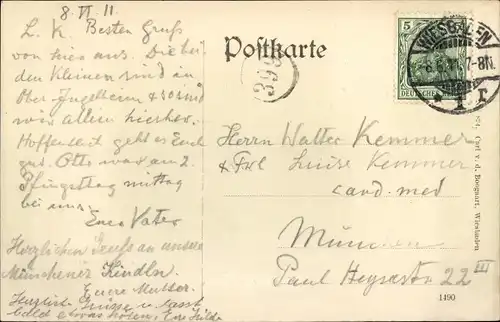 8. VI. 11.
L. K. Besten Gruss
von hier aus. Die bei-
den Kleinen sind in
Ober Ingelheim & so sind
wir allein hierher.
Hoffentlich geht es Euch
gut. Otto war am 2.
Pfingsttag mittag
bei uns.
Euer Vater
Herzlichen Gruss an unsere
Münchener Kindln.
Euere Mutter.
Herzliche Grüsse u. lasst
bald etwas hören, Eure Hilde
Postkarte
(393)
5
DEUTSCHES REICH
WIESBADEN
7-8N.
* 1 r
Herrn Walter Kemmer
& Frl Luise Kemmer
cand. med
München
Paul Heysestr 22 III
Carl v. d. Boogaart, Wiesbaden
1490